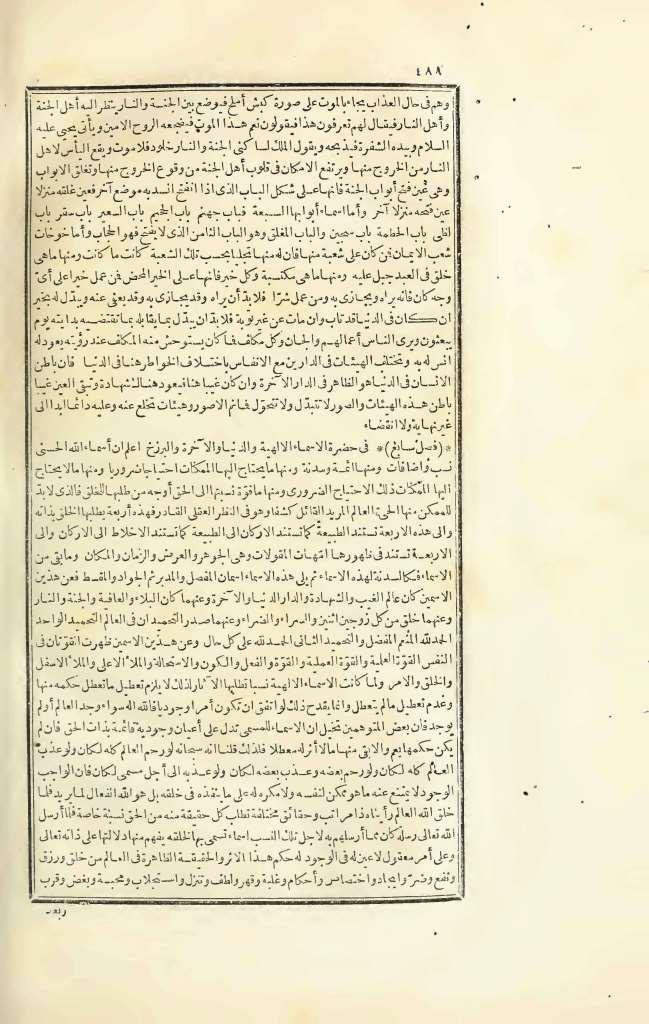 ٤٨٨
وهم فى حال العذاب يجاء بالموت على صورة كبش أملح فيوضع بين الجنة والنار ينظر اليه أهل الجنة
وأهل النار فيقال لهم تعرفون هذا فيقولون نعم هذا الموت فيضجعه الروح الامين ويأتى يحيى عليه
السلام وبيده الشفرة فيذبحه ويقول الملك لساكنى الجنة والنار خلود فلا موت ويقع اليأس لاهل
النار من الخروج منها ويرتفع الامكان فى قلوب أهل الجنة من وقوع الخروج منها وتغلق الابواب
وهى عين فتح أبواب الجنة فانها على شكل الباب الذى اذا انفتح انسد به موضع آخر فعين غلقه منزلا
عين فتحه منزلا آخر وأما اسماء أبوابها السبعة فباب جهنم باب الجحيم باب السعير باب سقر باب
لظى باب الحطمة باب سجين والباب المغلق وهو الباب الثامن الذى لا يفتح فهو الحجاب وأما خوخات
شعب الايمان فمن كان على شعبة منها فان له منها تجليا بحسب تلك الشعبة كانت ما كانت ومنها ما هى
خلق فى العبد جبل عليه ومنها ما هى مكتسبة وكل خير فانها على الخير المحض فمن عمل خيرا على أىّ
وجه كان فانه يراه ويجازى به ومن عمل شرّا فلا بدّ أن يراه وقد يجازى به وقد يعفى عنه ويبدّل له بخير
ان كان فى الدنيا قد تاب وان مات عن غير توبة فلا بد أن يبدّل بما يقابله بما تقتضيه بدايته يوم
يبعثون ويرى الناس أعمالهم والجان وكل مكلف فما كان يستوحش منه المكلف عند رؤيته يعود له
انس له به وتختلف الهيئات فى الدارين مع الانفاس باختلاف الخواطر هنا فى الدنيا فان باطن
الانسان فى الدنيا هو الظاهر فى الدار الآخرة وان كان غيبا هنا فيعود هنالك شهادة وتبقى العين غيبا
باطن هذه الهيئات والصور لا تتبدّل ولا تتحوّل فما ثم الا صور وهيئات تخلع عنه وعليه دائما أبدا الى
غير نهاية ولا انقضاء
*(فصل سابع)* فى حضرة الاسماء الالهية والدنيا والآخرة والبرزخ اعلم ان أسماء الله الحسنى
نسب واضافات ومنها ائمة وسدنة ومنها ما يحتاج اليها الممكنات احتياجا ضروريا ومنها ما لا يحتاج
اليها الممكنات ذلك الاحتياج الضرورى ومنها ما قوة نسبتها الى الحق أوجه من طلبها للخلق فالذى لا بدّ
للممكن منها الحىّ العالم المريد القائل كشفا وهو فى النظر العقلى القادر فهذه أربعة يطلبها الخلق بذاته
والى هذه الاربعة تستند الطبيعة كما تستند الاركان الى الطبيعة كما تستند الاخلاط الى الاركان والى
الاربعة تستند فى ظهورها امهات المقولات وهى الجوهر والعرض والزمان والمكان وما بقى من
الاسماء فكالسدنة لهذه الاسماء ثم يلى هذه الاسماء اسمان المفصل والمدبر ثم الجواد والمقسط فعن هذين
الاسمين كان عالم الغيب والشهادة والدار الدنيا والآخرة وعنهما كان البلاء والعافية والجنة والنار
وعنهما خلق من كل زوجين اثنين والسراء والضراء وعنهما صدر التحميدان فى العالم التحميد الواحد
الحمد لله المنعم المفضل والتحميد الثانى الحمد لله على كل حال وعن هذين الاسمين ظهرت القوتان فى
النفس القوّة العلمية والقوّة العملية والقوّة والفعل والكون والاستحالة والملأ الاعلى والملأ الاسفل
والخلق والامر ولما كانت الاسماء الالهية نسبا تطلبها الآثار لذلك لا يلزم تعطيل ما تعطل حكمه منها
وعدم تعطيل ما لم يتعطل وانما يقدح ذلك لو اتفق ان تكون أمرا وجوديا فالله اله سواء وجد العالم أو لم
يوجد فان بعض المتوهمين تخيل ان الاسماء للمسمى تدل على أعيان وجودية قائمة بذات الحق فان لم
يكن حكمها يعم والا بقى منها ما لا أثر له معطلا فلذلك قلنا انه سبحانه لو رحم العالم كله لكان ولو عذب
العالم كله لكان ولو رحم بعضه وعذب بعضه لكان ولو عذبه الى أجل مسمى لكان فان الواجب
الوجود لا يمتنع عنه ما هو ممكن لنفسه ولا مكره له على ما ينفذه فى خلقه بل هو الله الفعال لما يريد فلما
خلق الله العالم رأيناه ذا مراتب وحقائق مختلفة تطلب كل حقيقة منه من الحق نسبة خاصة فلما أرسل
الله تعالى رسله كان مما أرسلهم به لاجل تلك النسب اسماء تسمى بها لخلقه يفهم منها دلالتها على ذاته تعالى
وعلى أمر معقول لا عين له فى الوجود له حكم هذا الاثر والحقيقة الظاهرة فى العالم من خلق ورزق
ونفع وضرّ وايجاد واختصاص وأحكام وغلبة وقهر ولطف وتنزل واستجلاب ومحبة وبغض وقرب
وبعد